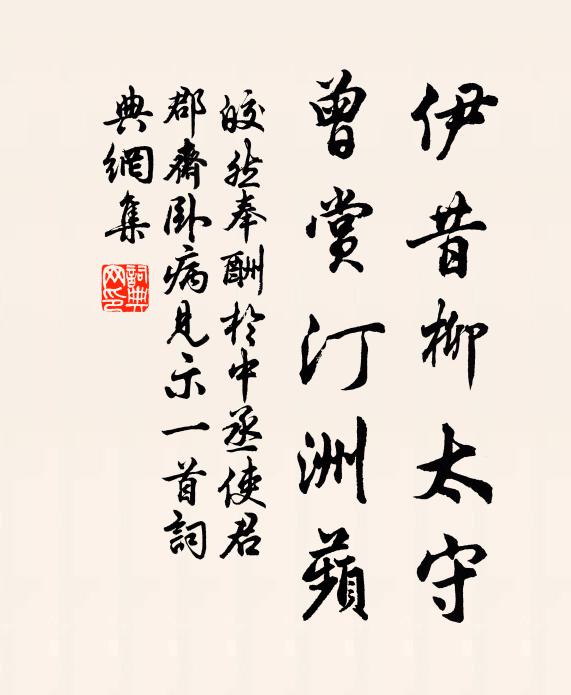 伊昔柳太守
曾賞汀洲蘋
皎然奉酬於中丞使君
郡齋臥病見示一首詞
典網集
詞典網印